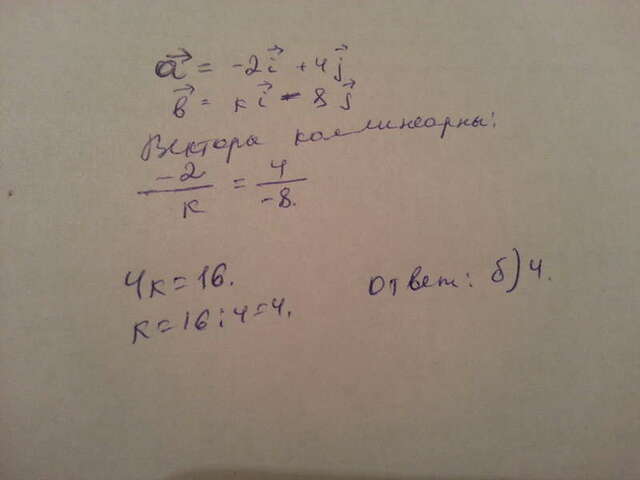 a⃗ = -2i⃗ + 4j⃗
в⃗ = кi⃗ - 8j⃗
Вектора коллинеарны:
-2/к = 4/-8.
4к = 16.
к = 16:4=4.
Ответ: б) 4.